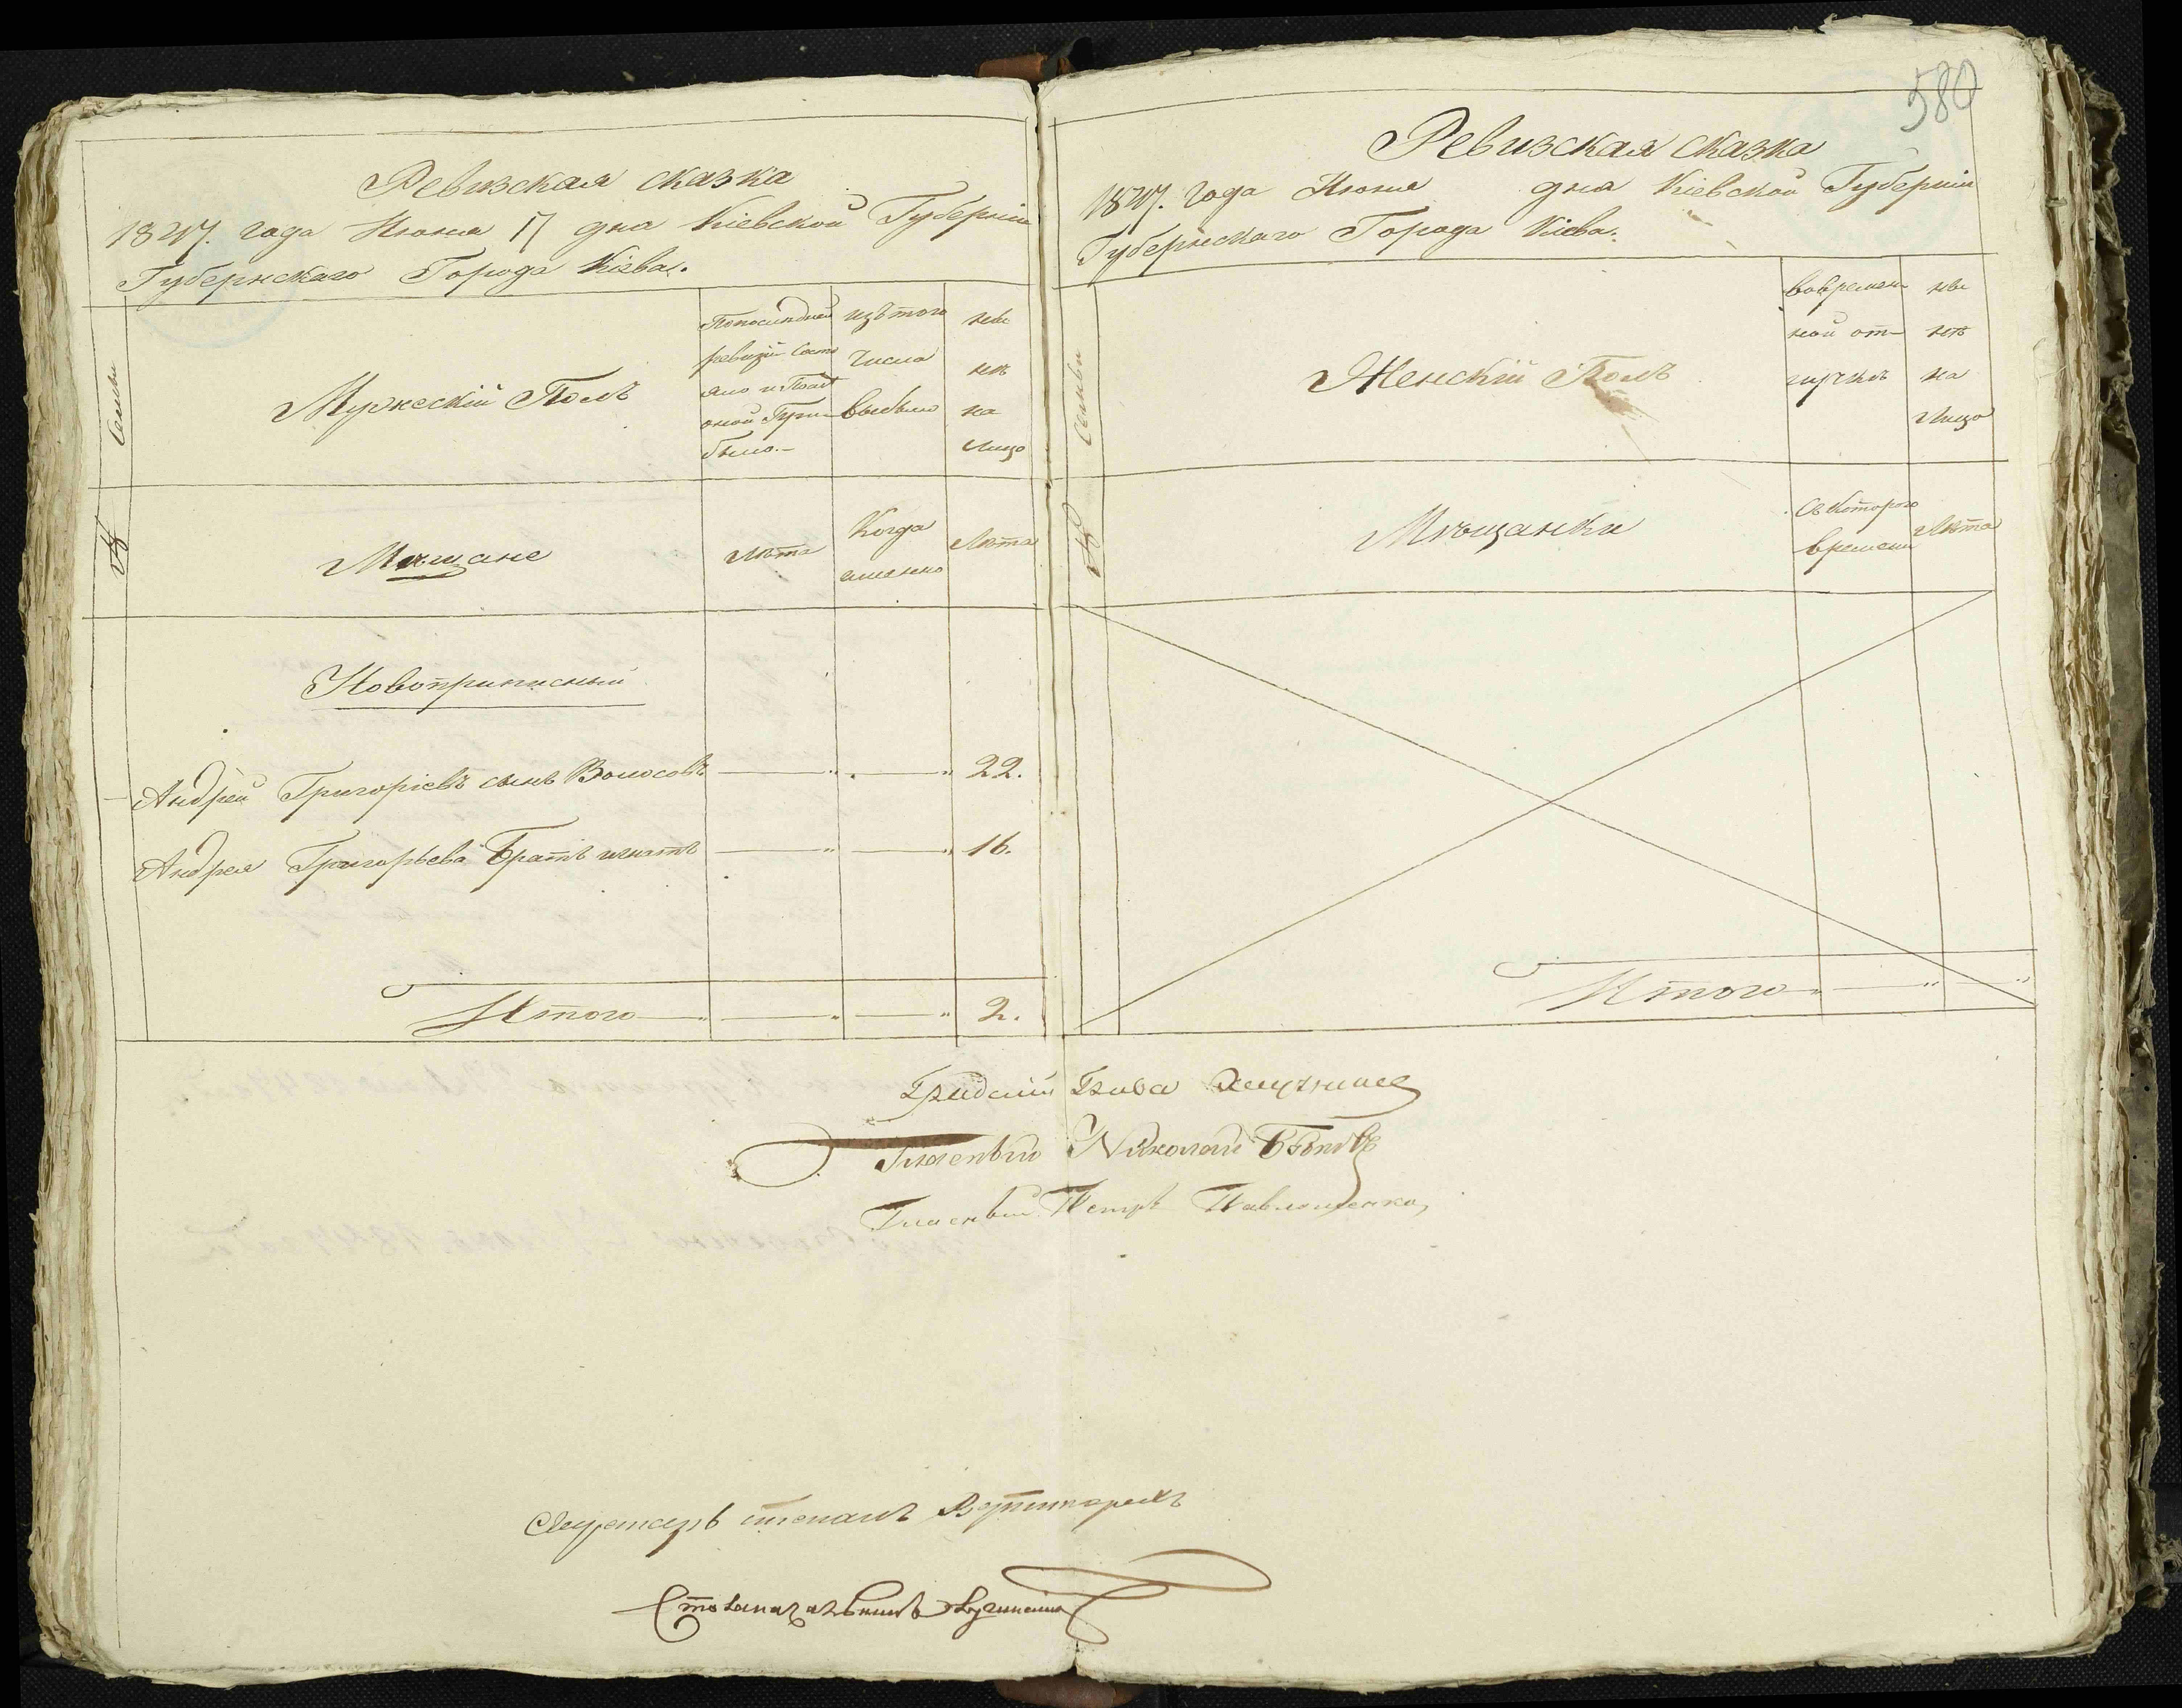 580
Ревизская сказка
1847. года Июня 17 дня Кіевской Губерніи
Губернскаго Города Кіева.
Семьи
Мужескій Полъ
По последней
ревизіи Состо
яло и После
оной
было.
изъ того
Числа
выбыло
ны
нѣ
на
Лицо
№
Мѣщане
Лѣта
Когда
именно
Лѣта
Новоприписный
Андрей Григоріевъ сынъ Волосовъ 22.
Андрея Григорьева Братъ игнатъ 16.
Итого 2.
Ревизская сказка
1847. года Июня дня Кіевской Губерніи
Губернскаго Города Кіева.
Семьи
Женскій Полъ
во времен
ной от
лучкѣ
ны
нѣ
на
Лицо
№
Мѣщанки
Съ Котораго
времени
Лѣта
Итого
Градскій Глава
Гласный Николай
Гласный Петръ Павлошенко
степанъ